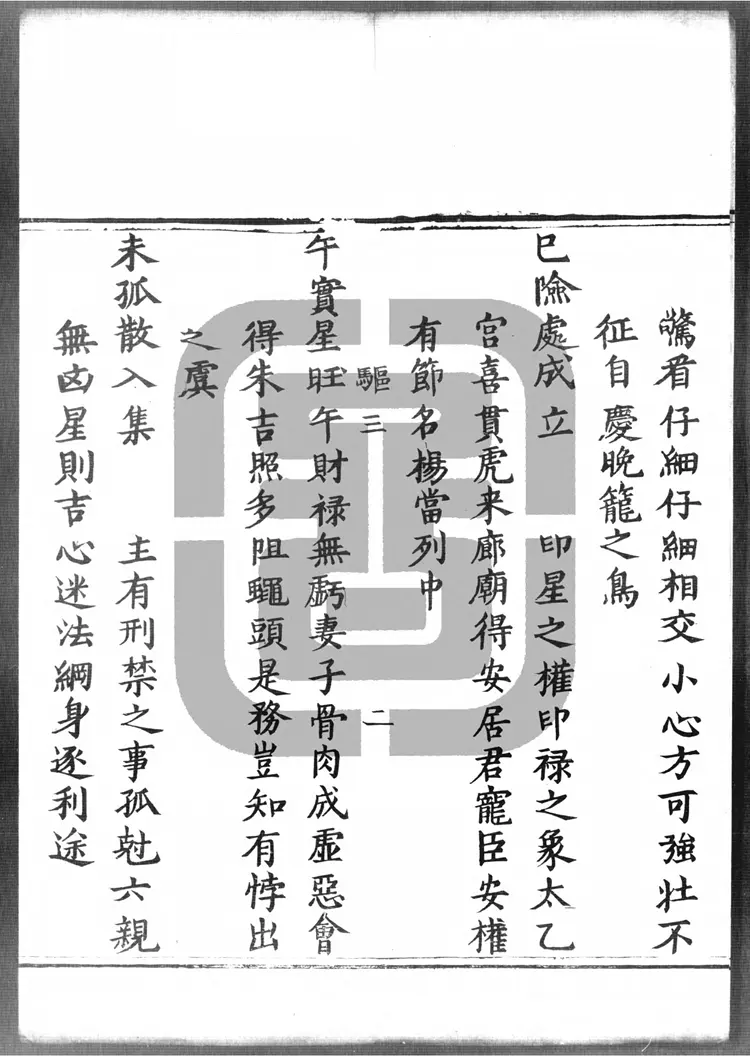 驚看仔細仔細相交小心方可強壮不
征自慶晚籠之鳥
巳險處成立 印星之權印禄之象太乙
宮喜貫虎来廊廟得安居君寵臣安權
有節名楊當列中
驅三 二
午實星旺午財禄無虧妻子骨肉成虛惡會
得朱吉照多阻蠅頭是務豈知有悖出
之虞
未孤散入集 主有刑禁之事孤尅六親
無凶星則吉心迷法網身逐利途